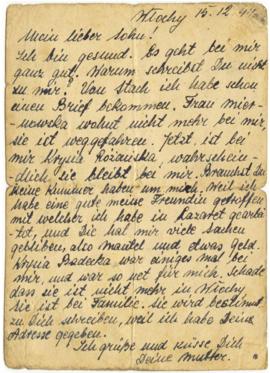 Włochy 15.12.41
Mein lieber Sohn!
Ich bin gesund. Es geht bei mir
ganz gut. Warum schreibst Du nicht
zu mir? Von Stach ich habe schon
einen Brief bekommen. Frau Mier-
nowska wohnt nicht mehr bei mir,
sie ist weggefahren. Jetzt ist bei
mir Krysia, wahrschein-
dlich, sie bleibt bei mir. Brauchst Du
keine Kummer haben um mich, weil ich
habe eine gute meine Freundin getroffen
mit welcher ich habe in Lazaret gearbei-
tet, und Die hat mir viele Sachen
gebliben, also Mantel und etwas Geld.
Krysia war einiges mal bei
mir, und war so net für mich. Schade
dass sie ist nicht mehr in Włochy
Sie ist bei Familie. Sie wird bestimmt
zu Dich schreiben, weil ich habe Deine
Adresse gegeben.
Ich grüße und küsse Dich
Deine Mutter.